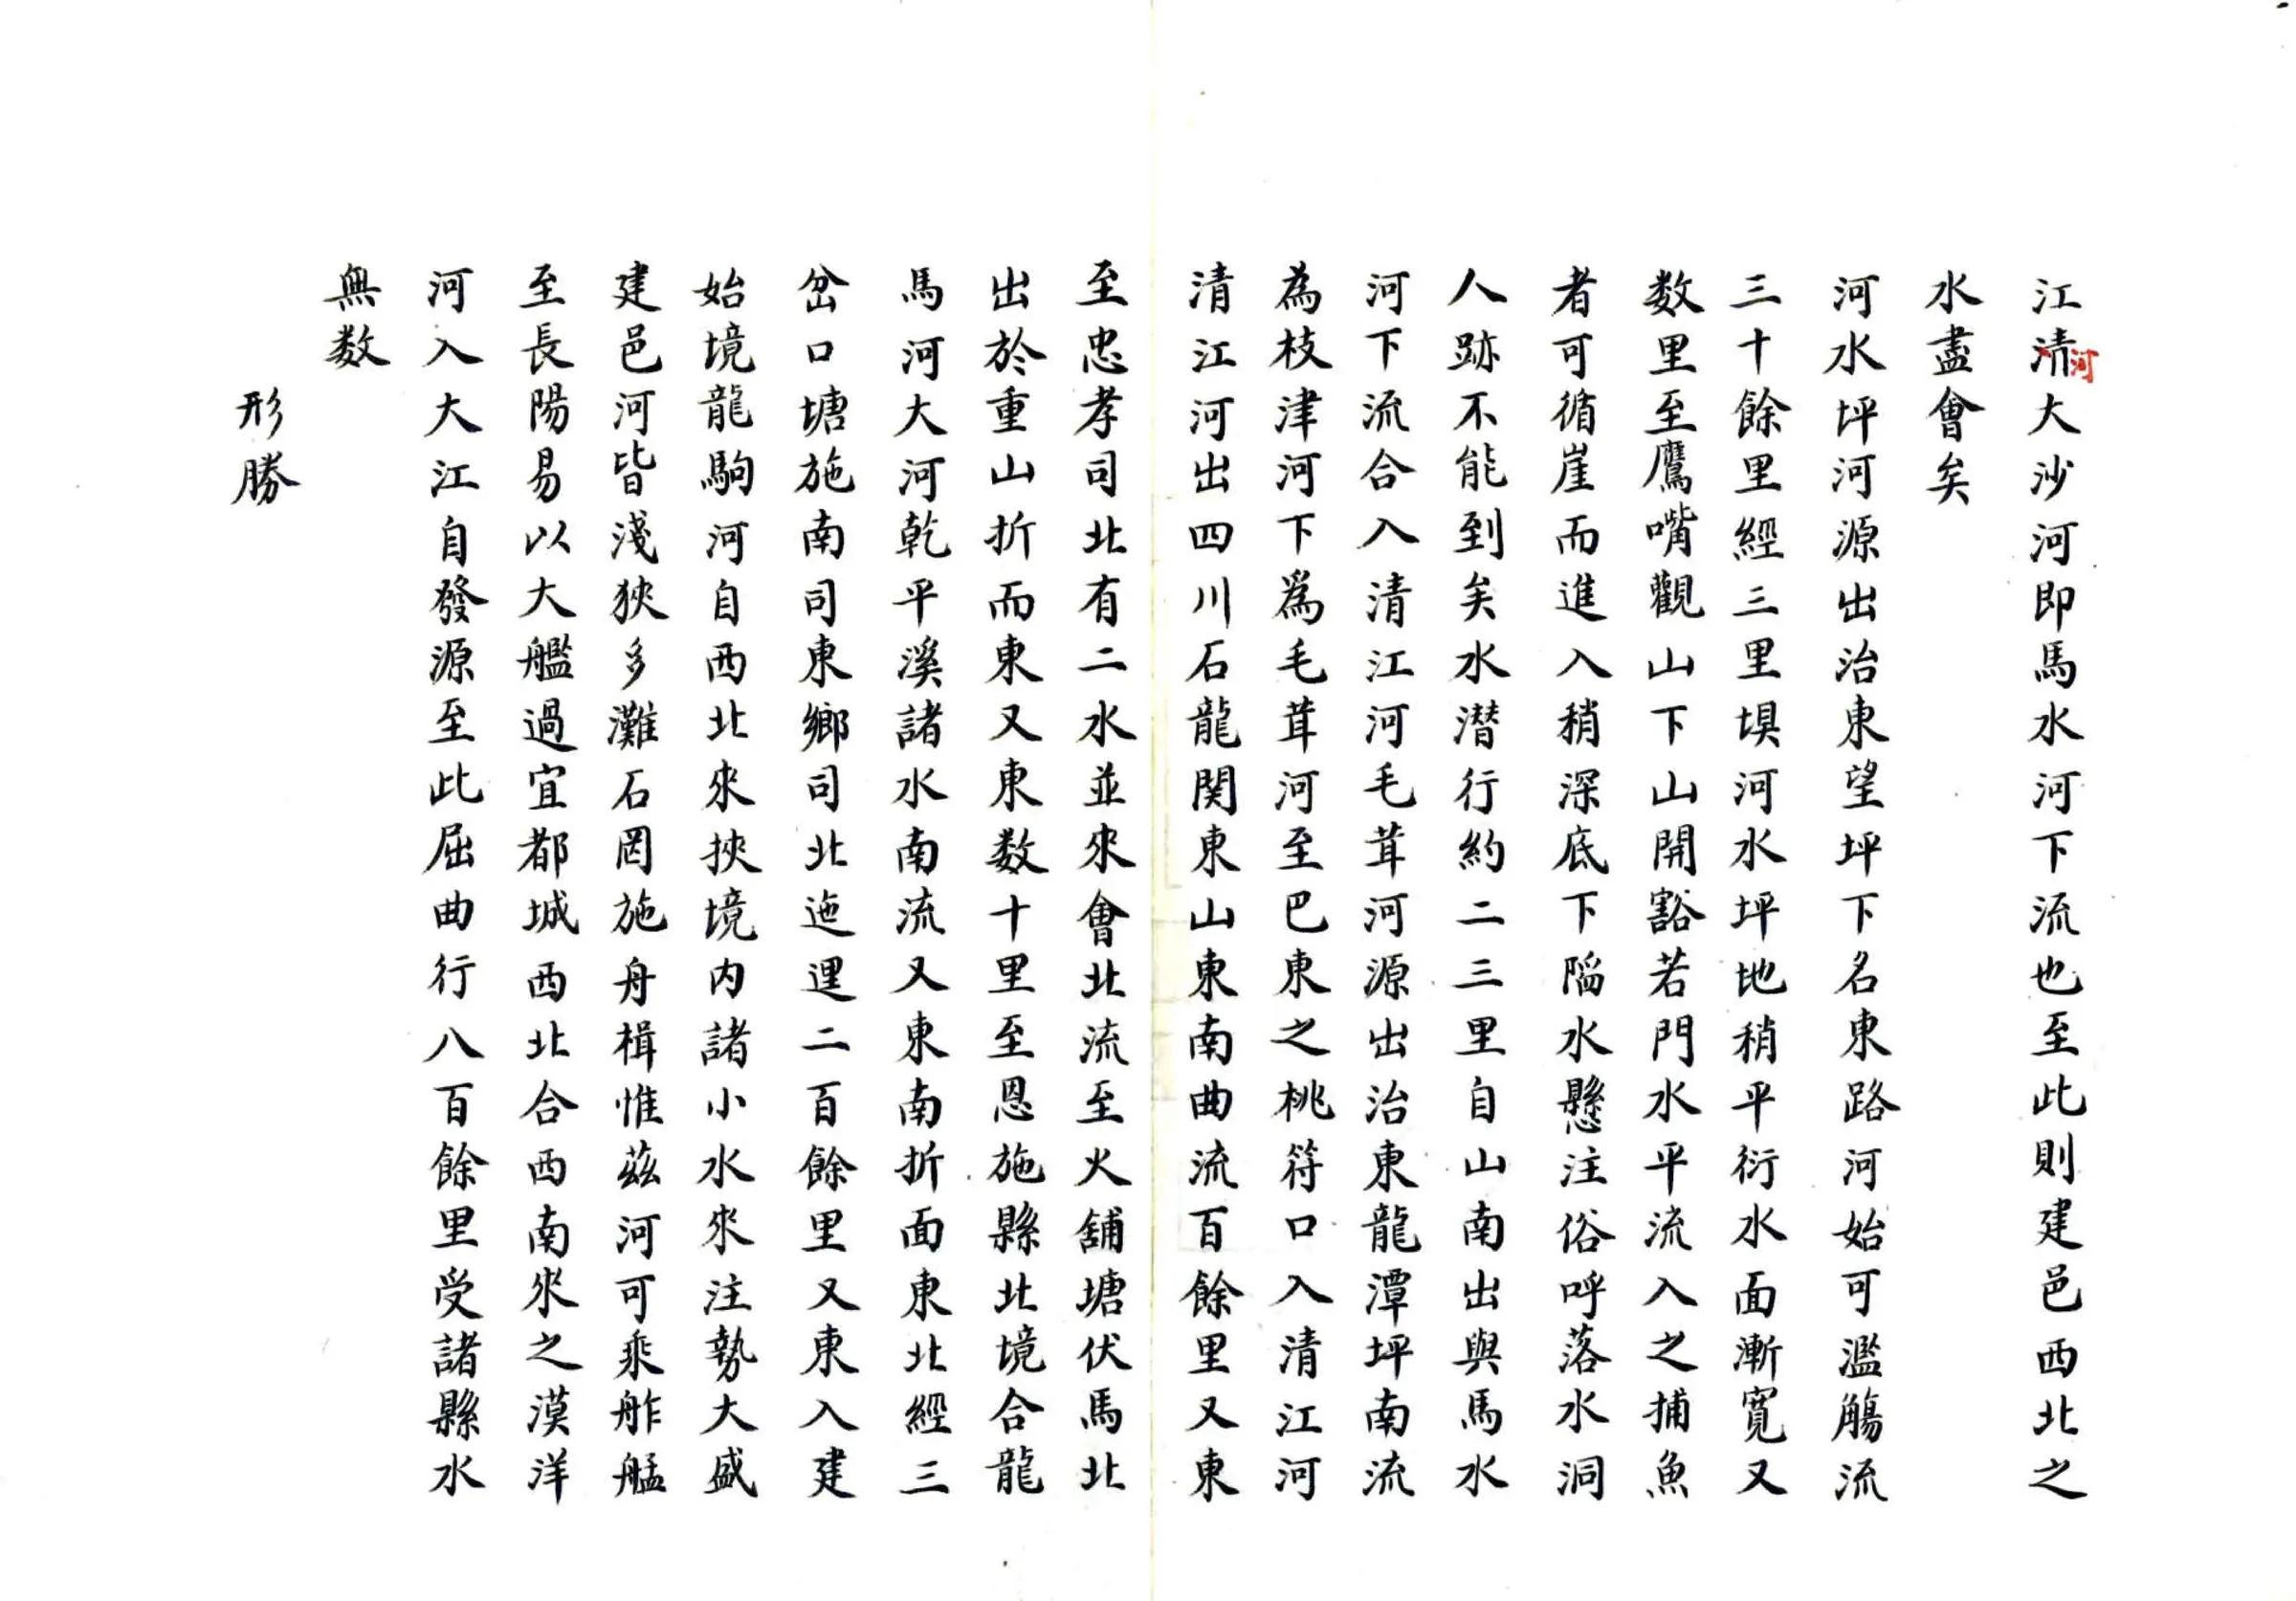 江清河大沙河即馬水河下流也至此則建邑西北之
水盡會矣
河水坪河源出治東望坪下名東路河始可濫觴流
三十餘里經三里垻河水坪地稍平衍水面漸寬又
数里至鷹嘴觀山下山開豁若門水平流入之捕魚
者可循崖而進入稍深底下陷水懸注俗呼落水洞
人跡不能到矣水潜行約二三里自山南出與馬水
河下流合入清江河毛茸河源出治東龍潭坪南流
為枝津河下爲毛茸河至巴東之桃符口入清江河
清江河出四川石龍関東山東南曲流百餘里又東
至忠孝司北有二水並來會北流至火舖塘伏馬北
出於重山折而東又東数十里至恩施縣北境合龍
馬河大河乾平溪諸水南流又東南折面東北經三
岔口塘施南司東鄉司北迤邐二百餘里又東入建
始境龍駒河自西北來挾境内諸小水來注勢大盛
建邑河皆淺狹多灘石罔施舟楫惟茲河可乘舴艋
至長陽易以大艦過宜都城西北合西南來之漠洋
河入大江自發源至此屈曲行八百餘里受諸縣水
無数
形勝